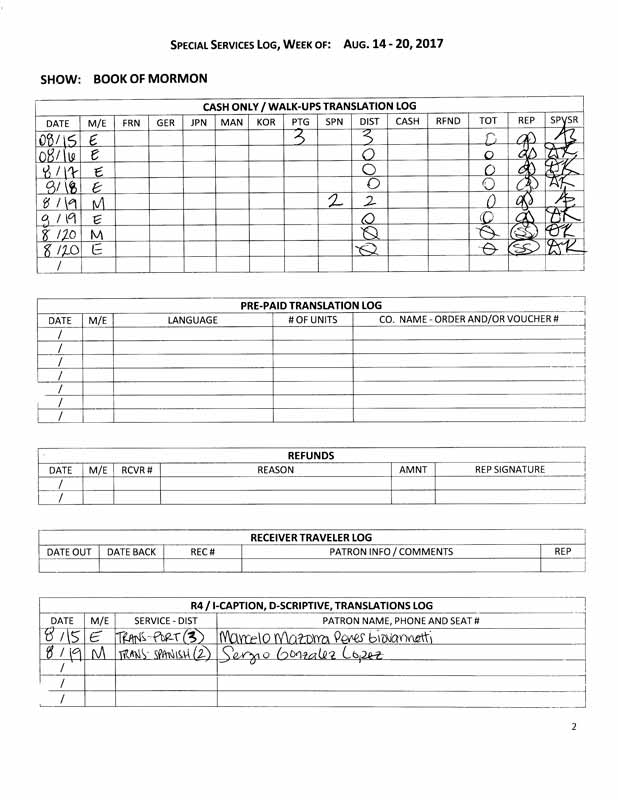 SPECIAL SERVICES LOG, WEEK OF: AUG. 14 - 20, 2017
SHOW: BOOK OF MORMON
CASH ONLY / WALK-UPS TRANSLATION LOG
DATE M/E FRN GER JPN MAN KOR PTG SPN DIST CASH RFND TOT REP SPVSR
08/15 E 3 3 0
08/16 E 0 0
8/17 E 0 0
8/18 E 0 0
8/19 M 2 2 0
8/19 E 0 0
8/20 M 0 0 SS
8/20 E 0 0 SS
/
PRE-PAID TRANSLATION LOG
DATE M/E LANGUAGE # OF UNITS CO. NAME - ORDER AND/OR VOUCHER #
/
/
/
/
/
/
/
REFUNDS
DATE M/E RCVR # REASON AMNT REP SIGNATURE
/
/
RECEIVER TRAVELER LOG
DATE OUT DATE BACK REC # PATRON INFO / COMMENTS REP
R4 / I-CAPTION, D-SCRIPTIVE, TRANSLATIONS LOG
DATE M/E SERVICE - DIST PATRON NAME, PHONE AND SEAT #
8/15 E TRANS-PORT (3) Marcelo Mazorra Peres Giovannetti
8/19 M TRANS-SPANISH (2) Sergio Gonzalez Lopez
/
/
/
2